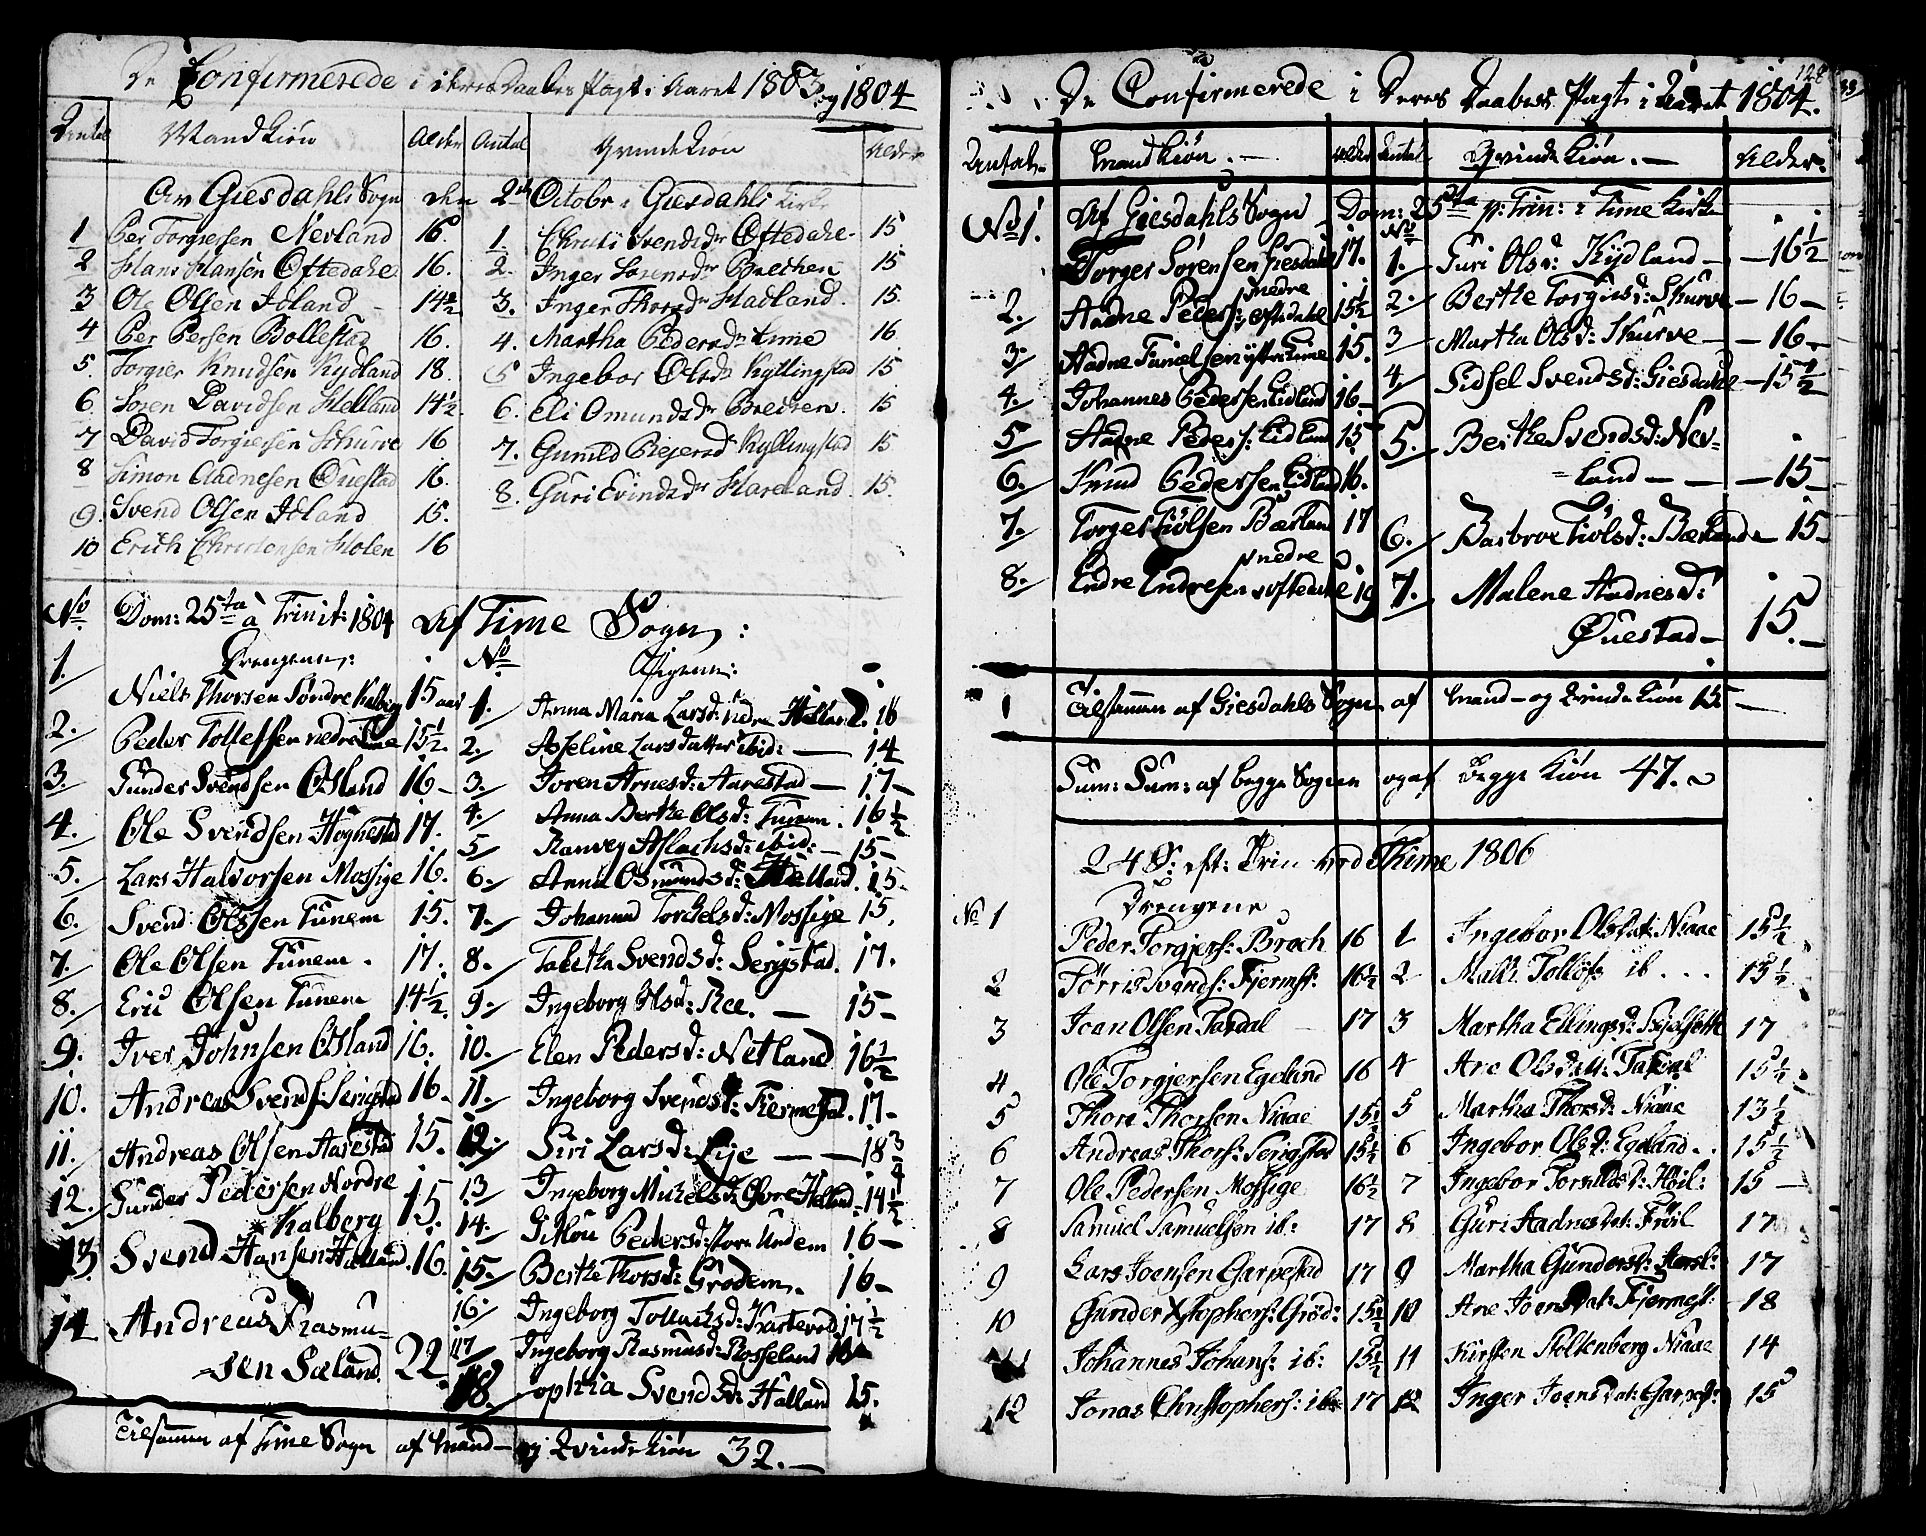 De Confirmerede i deres Daabes Pagt i Aaret 1803 og 1804
Antal Mandkiøn Alder Antal Qvindekiøn Alder
Av Giesdahls Sogn den 2den Octobr i Giesdahls Kirke
1 Per Torgiersen Nevland 16. 1. Christi Svendsdr Oftedahe 15
2 Hans Hansen Oftedahe 16. 2. Inger Sorensdr Brecken 15
3 Ole Olsen Idland 14½ 3. Inger Thorsdr Hadland. 15.
4 Per Persen Bollestad 16. 4. Martha Pedersdr Lime 16
5. Torgier Knudsen Kydland 18. 5 Ingebor Olsdr Kyllingstad 15
6. Soren Davidsen Helland 14½. 6. Eli Omundsdr Brecken. 15
7 David Torgiersen Schurve 16 7. Gunild Reiersdr Kyllingstad 15
8 Simon Aadnesen Ouestad 16. 8. Guri Evindsdr Hareland. 15.
9. Svend Olsen Idland 15.
10 Erich Christensen Holen 16
No Dom: 25ta à Trinit: 1804 Af Time Sogn:
Drengene: No Pigene:
1. Niels Thorsen Søndre Kalberg 15 aar 1. Anna Maria Larsd: nedre Hølland. 16
2. Peder Tollefsen nedre Lime 15½. 2. Asseline Larsdatter ibid: — 14
3. Gunder Svendsen Osland 16— 3. Joren Arnesd: Aarestad — 17—
4. Ole Svendsen Høgnestad 17. 4. Anna Berthe Olsd: Tunem. 16½
5. Lars Halvorsen Mossige 16. 5 Ranveg Aslachsd: ibid: — 15—
6. Svend Olssen Tunem 15. 6. Anna Osmundsd: Hølland. 15.
7. Ole Olsen Tunem. 17. 7. Johanna Torchelsd: Mossige 15.
8. Eric Olsen Tunem 14½. 8. Tabitha Svendsd: Serigstad. 17.
9. Iver Johnsen Osland 16. 9. Ingeborg Olsd: Ree. — 15—
10. Andreas Svends: Serigstad 16— 10. Elen Pedersd: Netland 16½
11. Andreas Olsen Aarestad 15. 11. Ingeborg Svendsd: Fiermestad. 17—
12. Gunder Pedersen Nordre 15. 12. Siri Larsd: Lye — — 18¾
Kalberg 13 Ingeborg Michelsd: Øvre Hølland 14½
13. Svend Hansen Haaland. 16. 14. Gitlou Pedersd: store Undem 16—
14 Andreas Rasmu- 15. Berthe Thorsd: Grødem. 16—
sen Sæland. 22 16. Ingeborg Tollachsd: Hartevold 17½
17 Ingeborg Rasmusd: Rosseland
18. ophia Svendsd: Halland 15.
Tilsamen af Time Sogn af Mand— og Qvindekiøn 32.—
128
De Confirmerede i Deres Daabes Pagt i Aaret 1804.
Antal Mandkiøn. Alder Antal Qvindekiøn.— Alder.
No 1. Af Giesdahls Sogn Dom: 25ta p: Trin: i Time Kirke
Torger Sørensen Giesdahl 17. No 1. Guri Olsd: Kydland — 16½
2. Aadne Peders: nedre Oftedahl 15½ 2. Berthe Torgiersd: Skurve — 16—
3. Aadne Danielsen yttre Lime 15. 3 Martha Olsd: Skurve — 16—
4. Johannes Pedersen Eidland 16— 4 Sidsel Svendsd: Giesdahl — 15½
5 Aadne Peders: Eidland 15 5. Berthe Svendsd: Nev-
6. Knud Pedersen Eidland 16. land — — — 15—
7. Torger Tiølsen Bærland 17 6. Barbroe Tiølsd: Bærland 15—
8. Endre Endresen nedre Oftedahl 19 7. Malene Aadnesd:
Øuestad — 15.—
1 Tilsamen af Giesdahls Sogn af Mand— og Qvindekiøn 15—
Sum: Sum: af begge Sogne og af begge Kiøn 47.
24 S: eft: Trin ved Thime 1806
Drengene
No 1 Peder Torgjers: Broch 16 1 Ingebor Olsdat: Niaae 15½
2 Tørris Svends: Fjermst: 16½ 2 Malli Tollofs: ib... 15½
3 Joan Olsen Tardal 17 3 Martha Ellingsd: Skjelseth 17
4 Ole Torgjersen Egeland 16 4 Are Olsdatt: Tardal 15½
5 Thore Thorsen Niaae 15½ 5 Martha Thorsd: Niaae 13½
6 Andreas Thors: Serigstad 15½ 6 Ingebor Olsd: Egeland.. 15½
7 Ole Pedersen Mossige 16½ 7 Ingebor Torkildsd: Høil: 15 —
8 Samuel Samuelsen ib: 17 8 Guri Aadnesdat: Frøil 17
9 Lars Joensen Garpestad 17 9 Martha Gundersd: 17
10 Gunder Xstophers: Grød: 15½ 10 Ane Joensdat: Fjermest: 18
Johannes Johans: ib: 15½ 11 Kirsten Stoltenberg Niaae 14
12 Jonas Christophers: ib: 17 12 Inger Joensdat: Garpest: 15